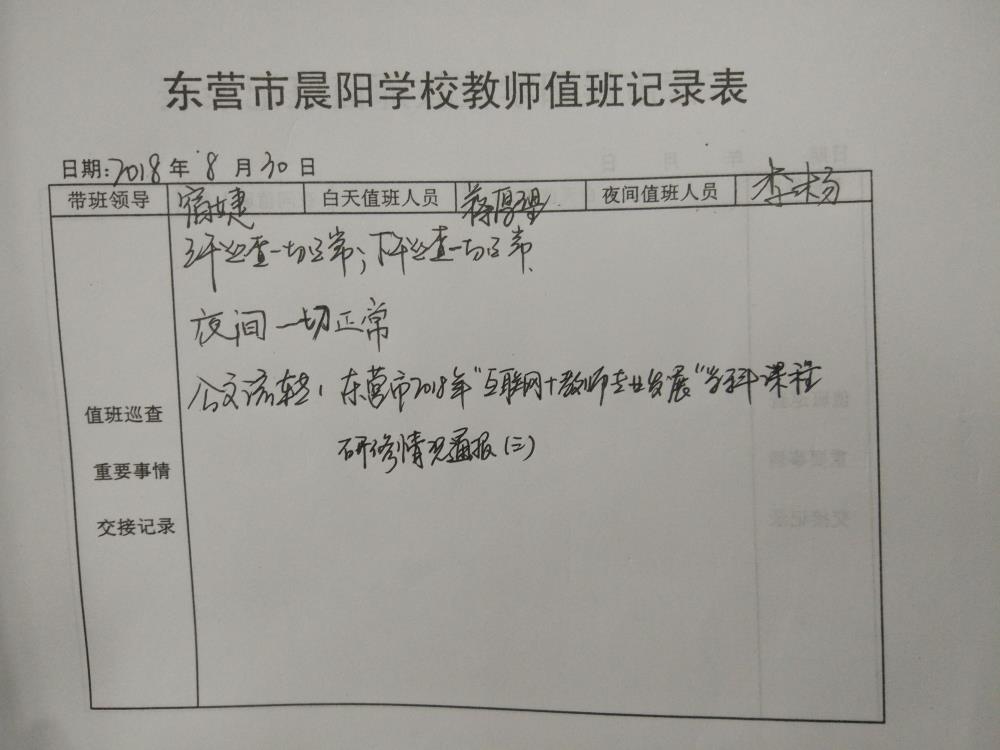 东营市晨阳学校教师值班记录表
日期:2018年8月30日
带班领导 白天值班人员 夜间值班人员 李杨
上午巡查一切正常;下午巡查一切正常.
夜间一切正常
公文流转: 东营市2018年"互联网+教师专业发展"学科课程
研修情况通报(三)
值班巡查
重要事情
交接记录